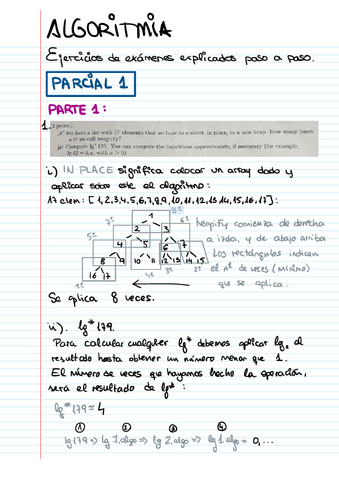 ALGORITMIA
Ejercicios de exámenes explicados paso a paso.
PARCIAL 1
PARTE 1:
1. We have a list with 17 elements that we have to convert, in place, to a min heap. How many times
we call heapify?
Compute lg* 179. You can compute the logarithms approximately, if necessary (for example,
i.) IN PLACE significa colocar un array dado y
aplicar sobre este el algoritmo:
17 elem: [1,2,3,4,5,6,7,8,9,10,11,12,13,14,15,16,17]:
1
2 3
4 5 6 7
8 9 10 11 12 13 14 15
16 17
8º
7º 6º
5º
4º 3º 2º
heapify comienza de derecha
a izda, y de abajo arriba
Los rectángulos indican
el nº de veces (mínimo)
que se aplica.
Se aplica 8 veces.
ii). lg* 179.
Para calcular cualquier lg* debemos aplicar lg₂ al
resultado hasta obtener un número menor que 1.
El número de veces que hayamos hecho la operación,
será el resultado de lg*:
lg* 179 ≃ 4
① ② ③ ④
lg 179 => lg 7.algo => lg 2.algo => lg 1.algo = 0,...